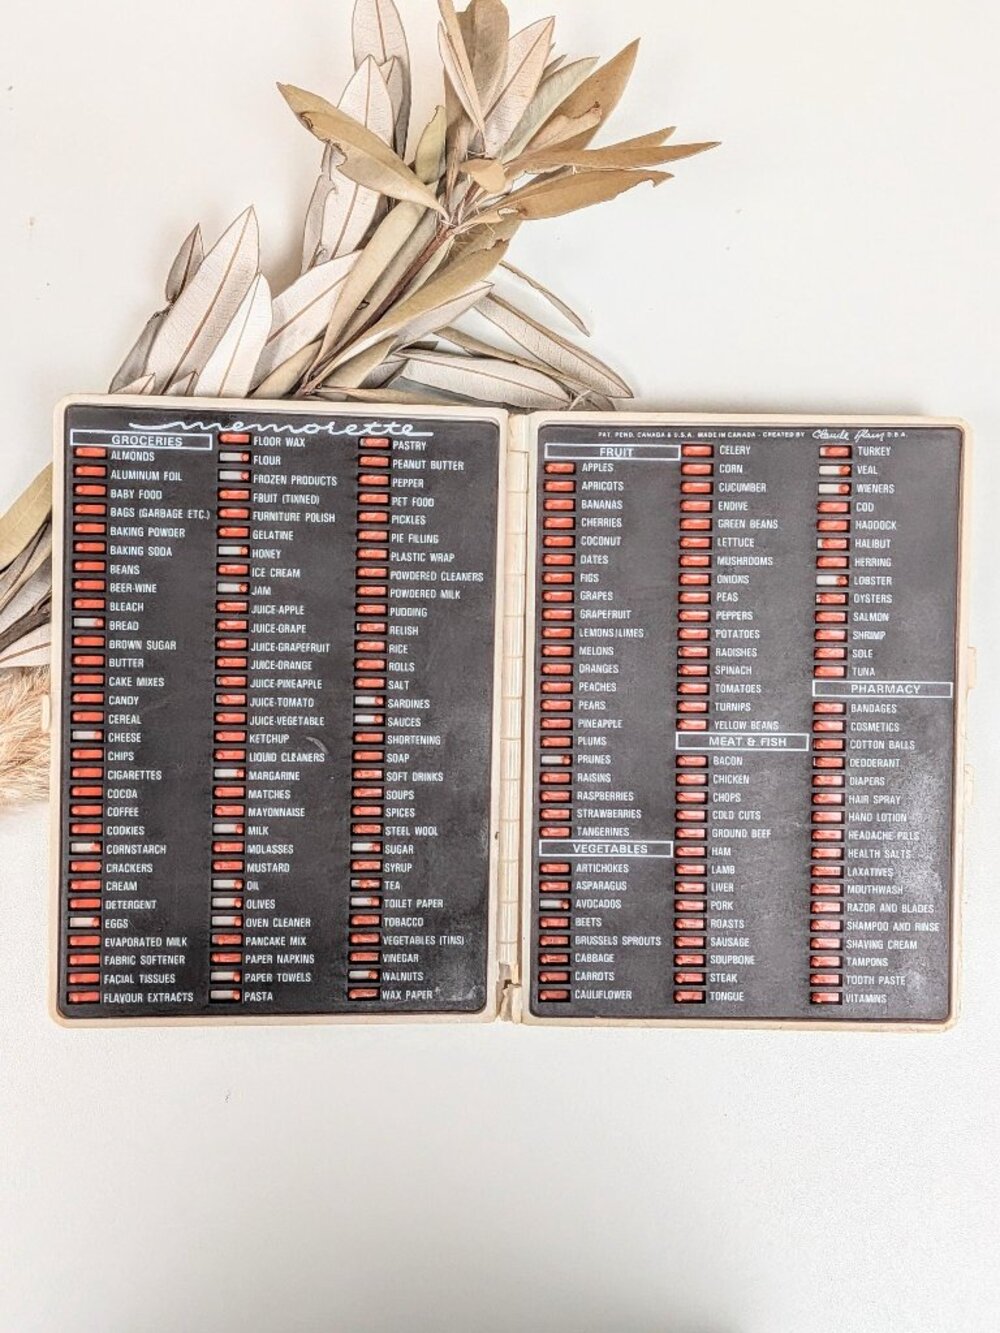 memorette
GROCERIES
ALMONDS
ALUMINUM FOIL
BABY FOOD
BAGS (GARBAGE ETC.)
BAKING POWDER
BAKING SODA
BEANS
BEER-WINE
BLEACH
BREAD
BROWN SUGAR
BUTTER
CAKE MIXES
CANDY
CEREAL
CHEESE
CHIPS
CIGARETTES
COCOA
COFFEE
COOKIES
CORNSTARCH
CRACKERS
CREAM
DETERGENT
EGGS
EVAPORATED MILK
FABRIC SOFTENER
FACIAL TISSUES
FLAVOUR EXTRACTS
FLOOR WAX
FLOUR
FROZEN PRODUCTS
FRUIT (TINNED)
FURNITURE POLISH
GELATINE
HONEY
ICE CREAM
JAM
JUICE-APPLE
JUICE-GRAPE
JUICE-GRAPEFRUIT
JUICE-ORANGE
JUICE-PINEAPPLE
JUICE-TOMATO
JUICE-VEGETABLE
KETCHUP
LIQUID CLEANERS
MARGARINE
MATCHES
MAYONNAISE
MILK
MOLASSES
MUSTARD
OIL
OLIVES
OVEN CLEANER
PANCAKE MIX
PAPER NAPKINS
PAPER TOWELS
PASTA
PASTRY
PEANUT BUTTER
PEPPER
PET FOOD
PICKLES
PIE FILLING
PLASTIC WRAP
POWDERED CLEANERS
POWDERED MILK
PUDDING
RELISH
RICE
ROLLS
SALT
SARDINES
SAUCES
SHORTENING
SOAP
SOFT DRINKS
SOUPS
SPICES
STEEL WOOL
SUGAR
SYRUP
TEA
TOILET PAPER
TOBACCO
VEGETABLES (TINS)
VINEGAR
WALNUTS
WAX PAPER
PAT. PEND. CANADA & U.S.A. MADE IN CANADA - CREATED BY Claude D.B.A.
FRUIT
APPLES
APRICOTS
BANANAS
CHERRIES
COCONUT
DATES
FIGS
GRAPES
GRAPEFRUIT
LEMONS/LIMES
MELONS
ORANGES
PEACHES
PEARS
PINEAPPLE
PLUMS
PRUNES
RAISINS
RASPBERRIES
STRAWBERRIES
TANGERINES
VEGETABLES
ARTICHOKES
ASPARAGUS
AVOCADOS
BEETS
BRUSSELS SPROUTS
CABBAGE
CARROTS
CAULIFLOWER
CELERY
CORN
CUCUMBER
ENDIVE
GREEN BEANS
LETTUCE
MUSHROOMS
ONIONS
PEAS
PEPPERS
POTATOES
RADISHES
SPINACH
TOMATOES
TURNIPS
YELLOW BEANS
MEAT & FISH
BACON
CHICKEN
CHOPS
COLD CUTS
GROUND BEEF
HAM
LAMB
LIVER
PORK
ROASTS
SAUSAGE
SOUPBONE
STEAK
TONGUE
TURKEY
VEAL
WIENERS
COD
HADDOCK
HALIBUT
HERRING
LOBSTER
OYSTERS
SALMON
SHRIMP
SOLE
TUNA
PHARMACY
BANDAGES
COSMETICS
COTTON BALLS
DEODERANT
DIAPERS
HAIR SPRAY
HAND LOTION
HEADACHE PILLS
HEALTH SALTS
LAXATIVES
MOUTHWASH
RAZOR AND BLADES
SHAMPOO AND RINSE
SHAVING CREAM
TAMPONS
TOOTH PASTE
VITAMINS